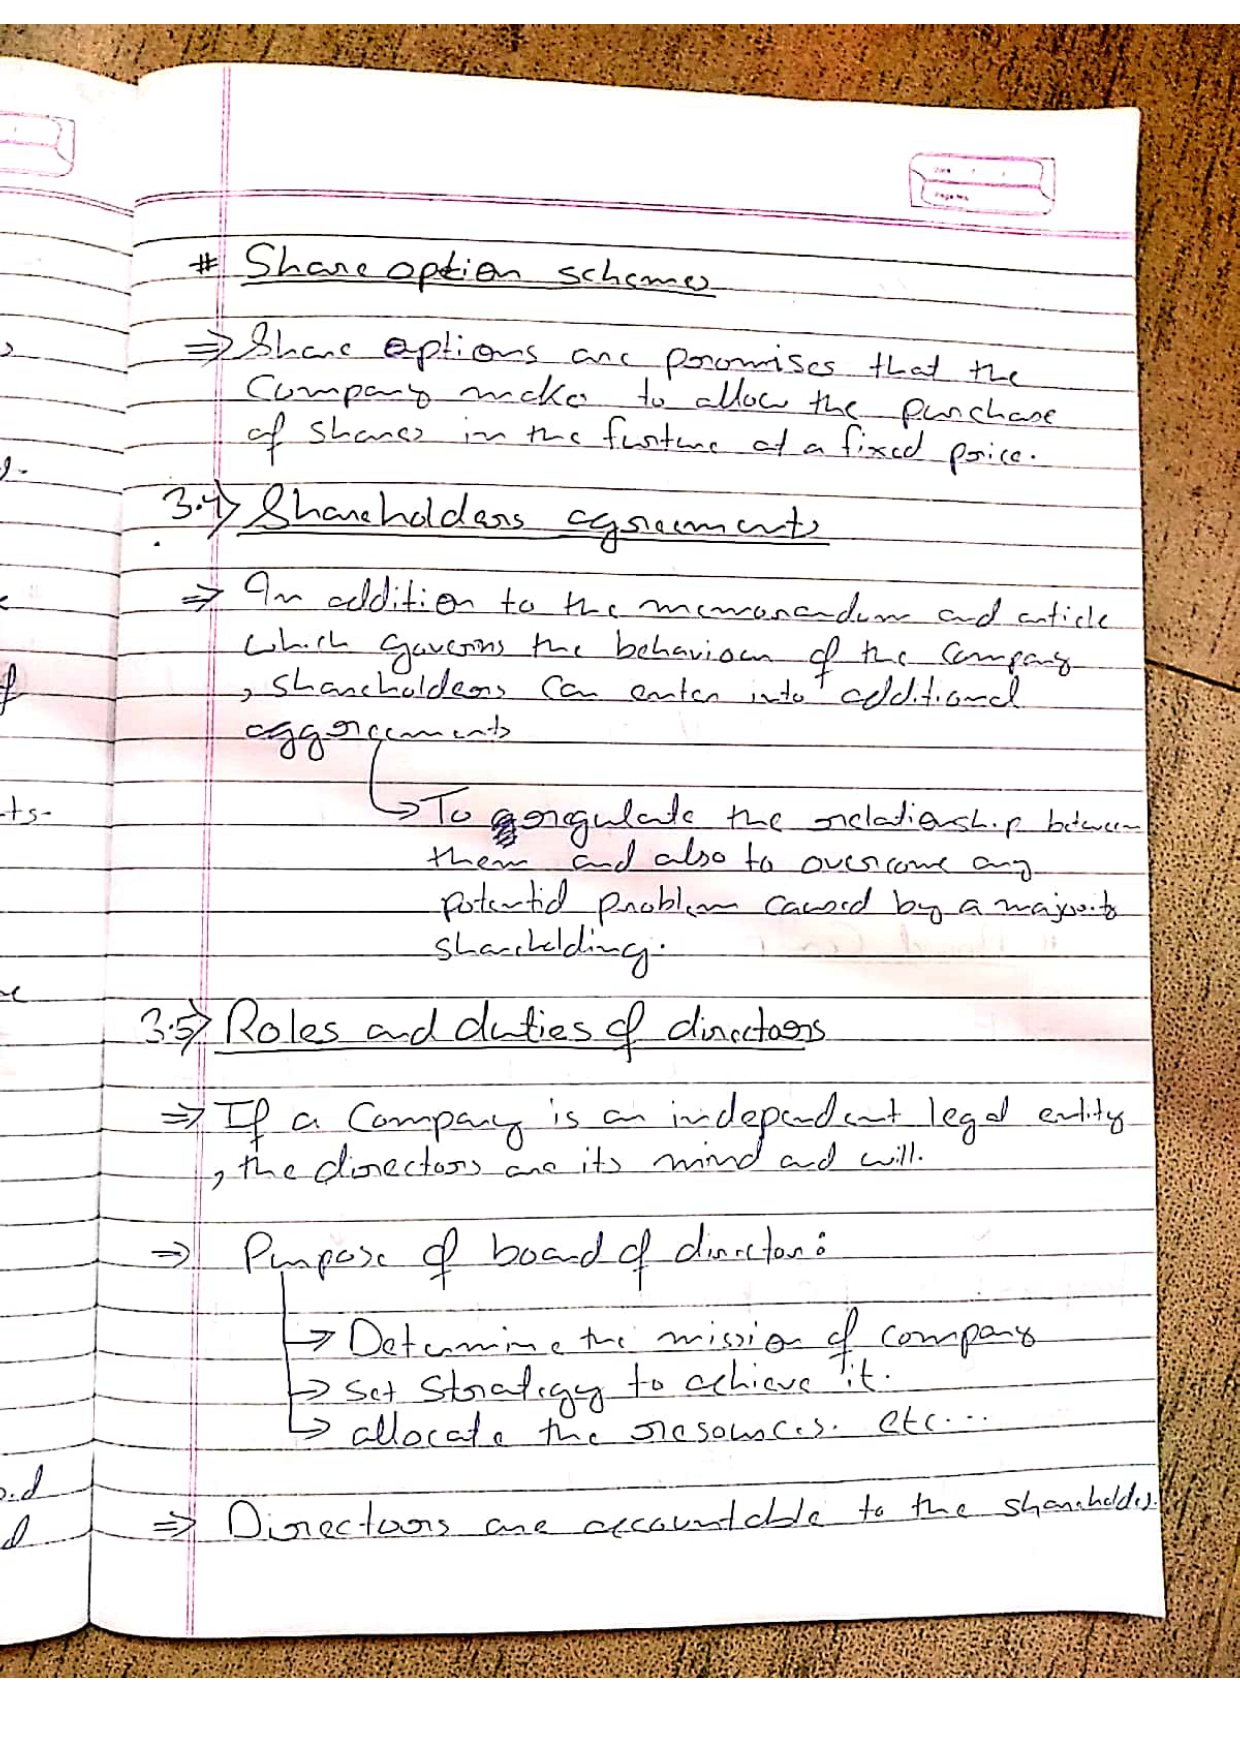 # Share option schemes
⇒ Share options are promises that the
Company makes to allow the purchase
of shares in the furture at a fixed price.
3.4) Shareholders agreements
⇒ In addition to the memorandum and article
which governs the behaviour of the company
, shareholders can enter into additional
aggreements
→ To regulate the relationship between
them and also to overcome any
potential problem caused by a majority
shareholding.
3.5) Roles and duties of directors
⇒ If a Company is an independent legal entity
, the directors are its mind and will.
⇒ Purpose of board of director:
→ Determine the mission of company
→ set strategy to achieve it.
→ allocate the resources. etc...
⇒ Directors are accountable to the shareholders.